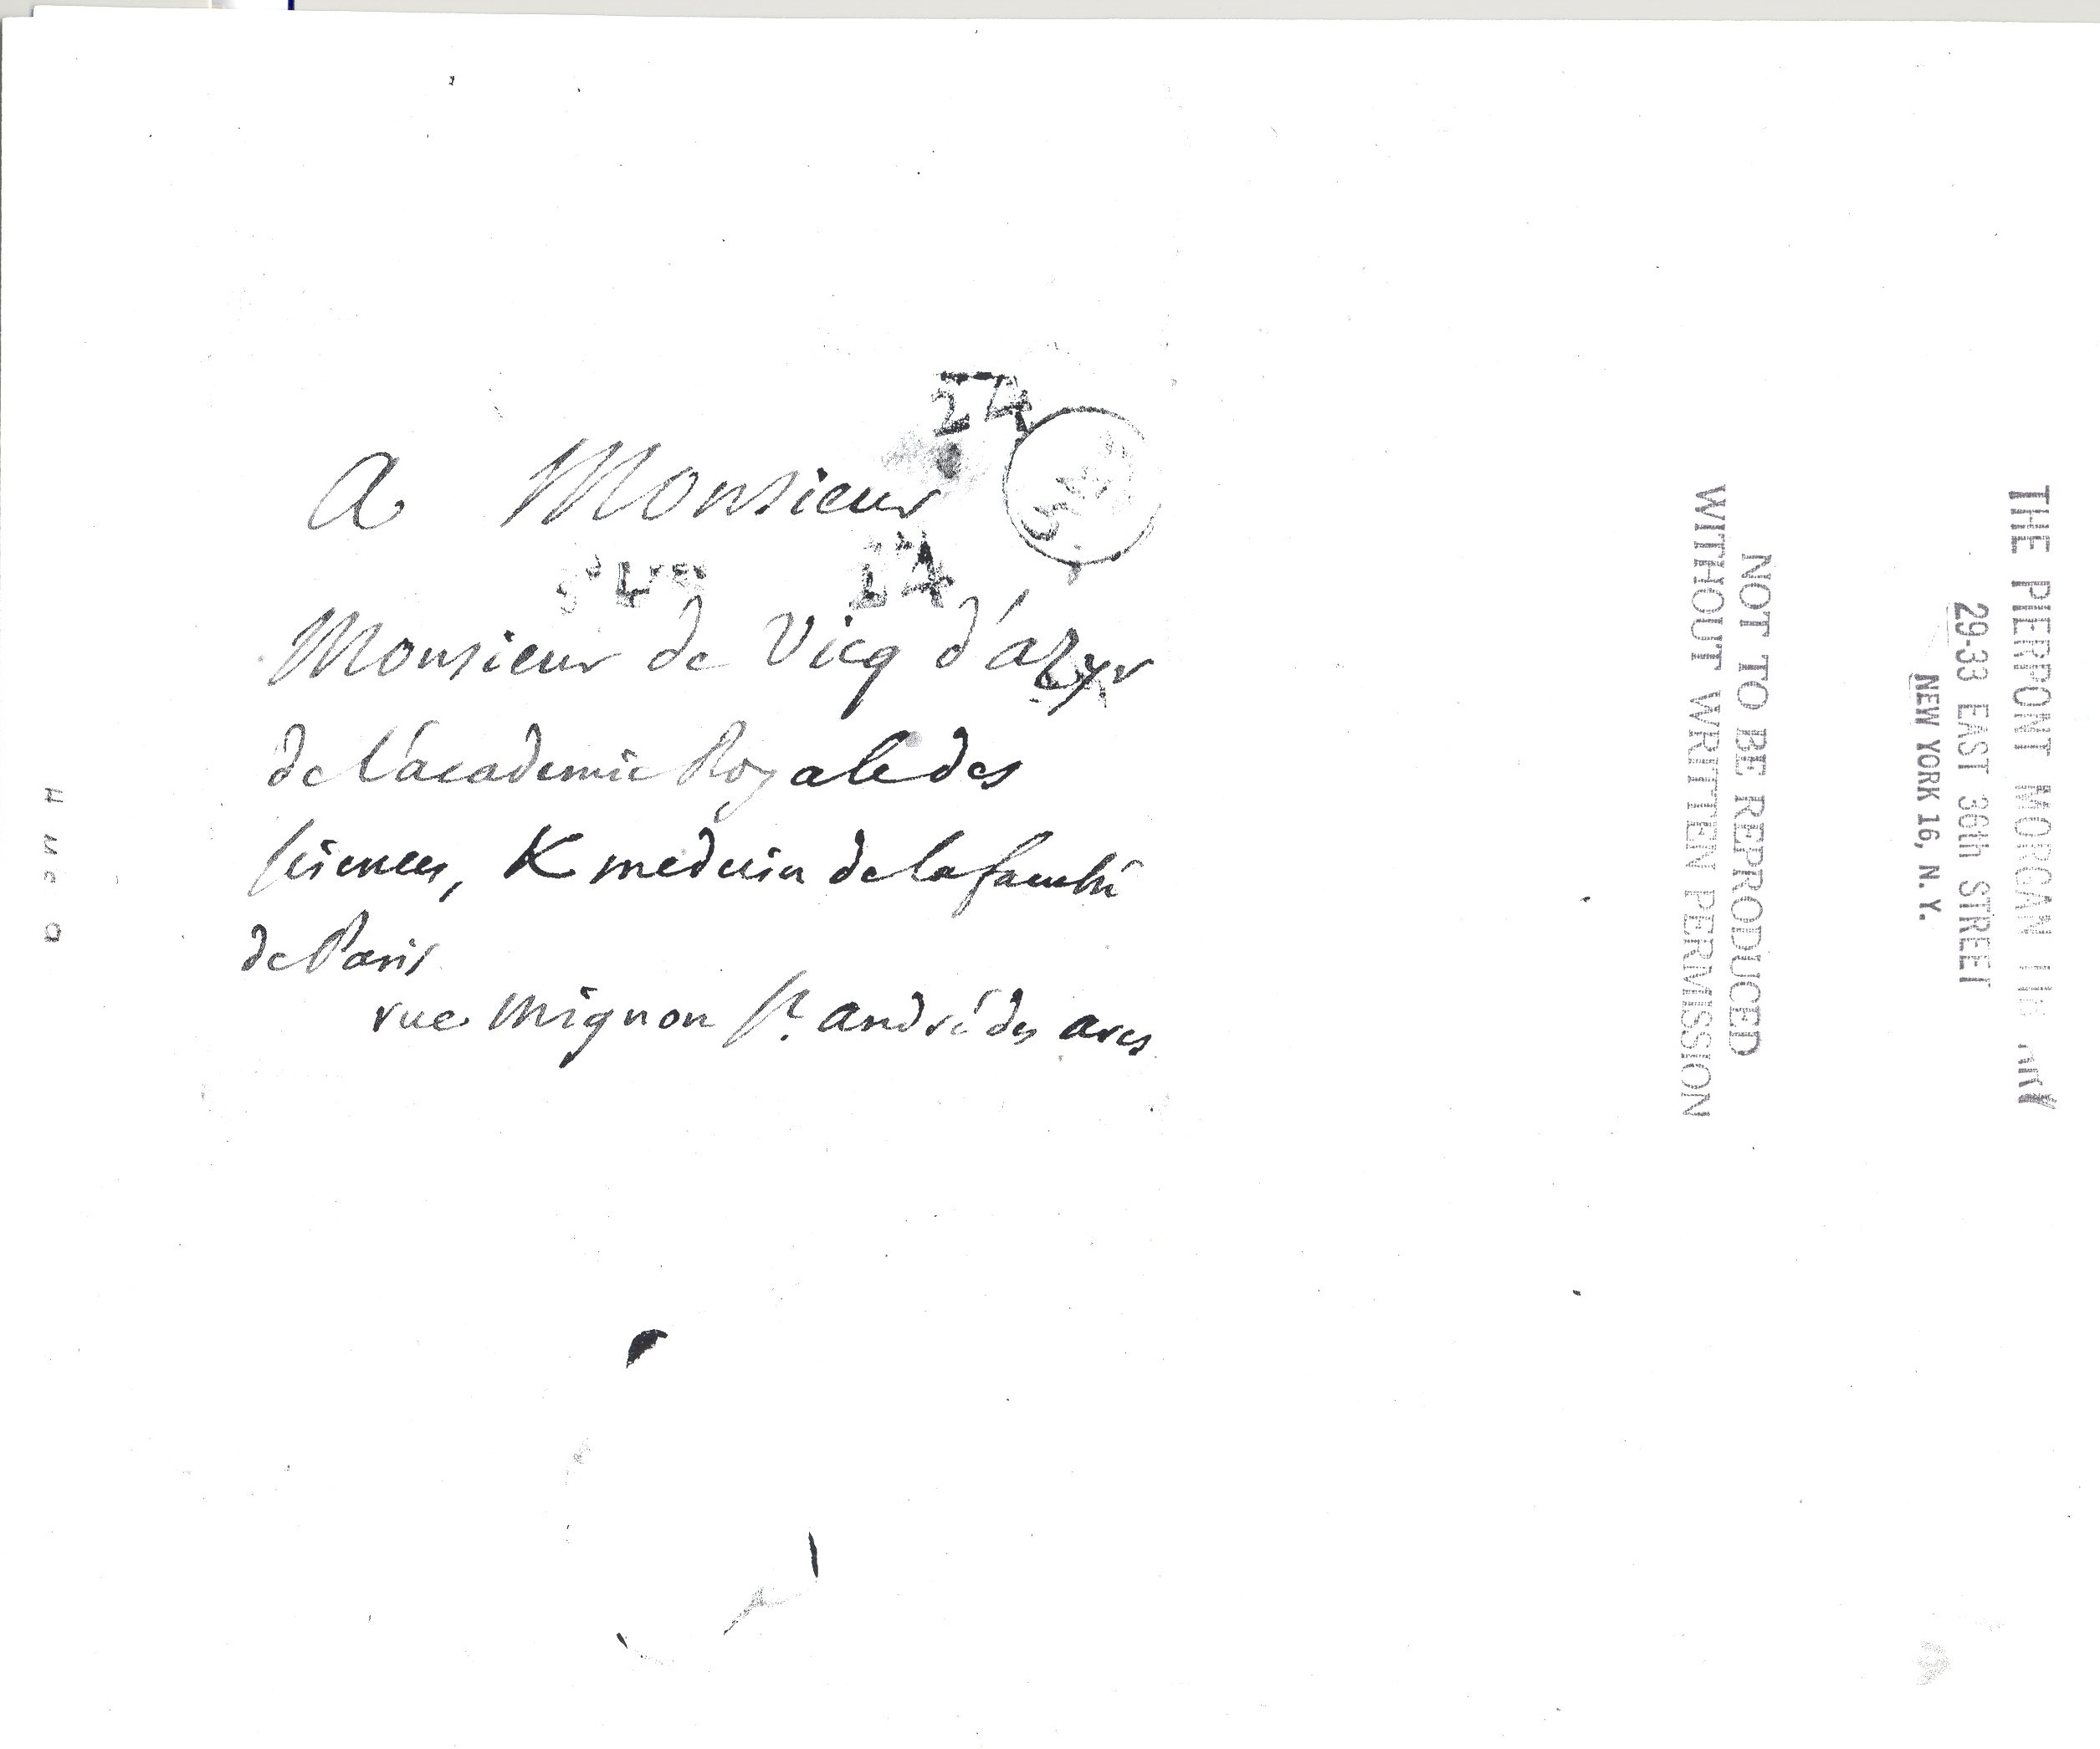 A Monsieur
24
24
Monsieur de Vicq d'azyr
de l'academie Royale des
sciences, & medecin de la faculté
de Paris
rue Mignon St. andré des arcs
NOT TO BE REPRODUCED
WITHOUT WRITTEN PERMISSION
THE PIERPONT MORGAN
29-33 EAST 36th STREET
NEW YORK 16, N. Y.